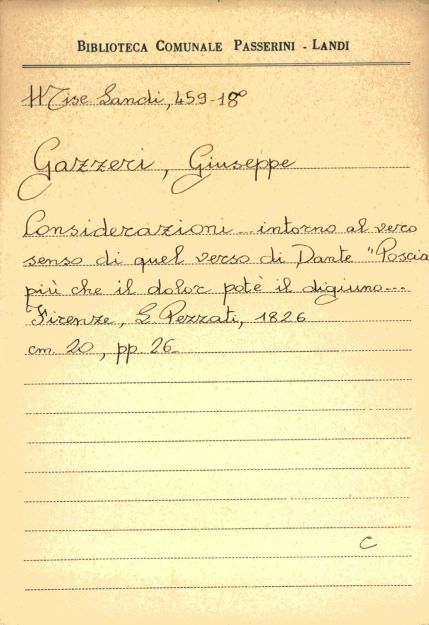 BIBLIOTECA COMUNALE PASSERINI - LANDI
Misc Landi, 459-18°
Gazzeri, Giuseppe
Considerazioni intorno al vero
senso di quel verso di Dante "Poscia
più che il dolor potè il digiuno...
Firenze, L Pezzati, 1826
cm. 20, pp. 26
C